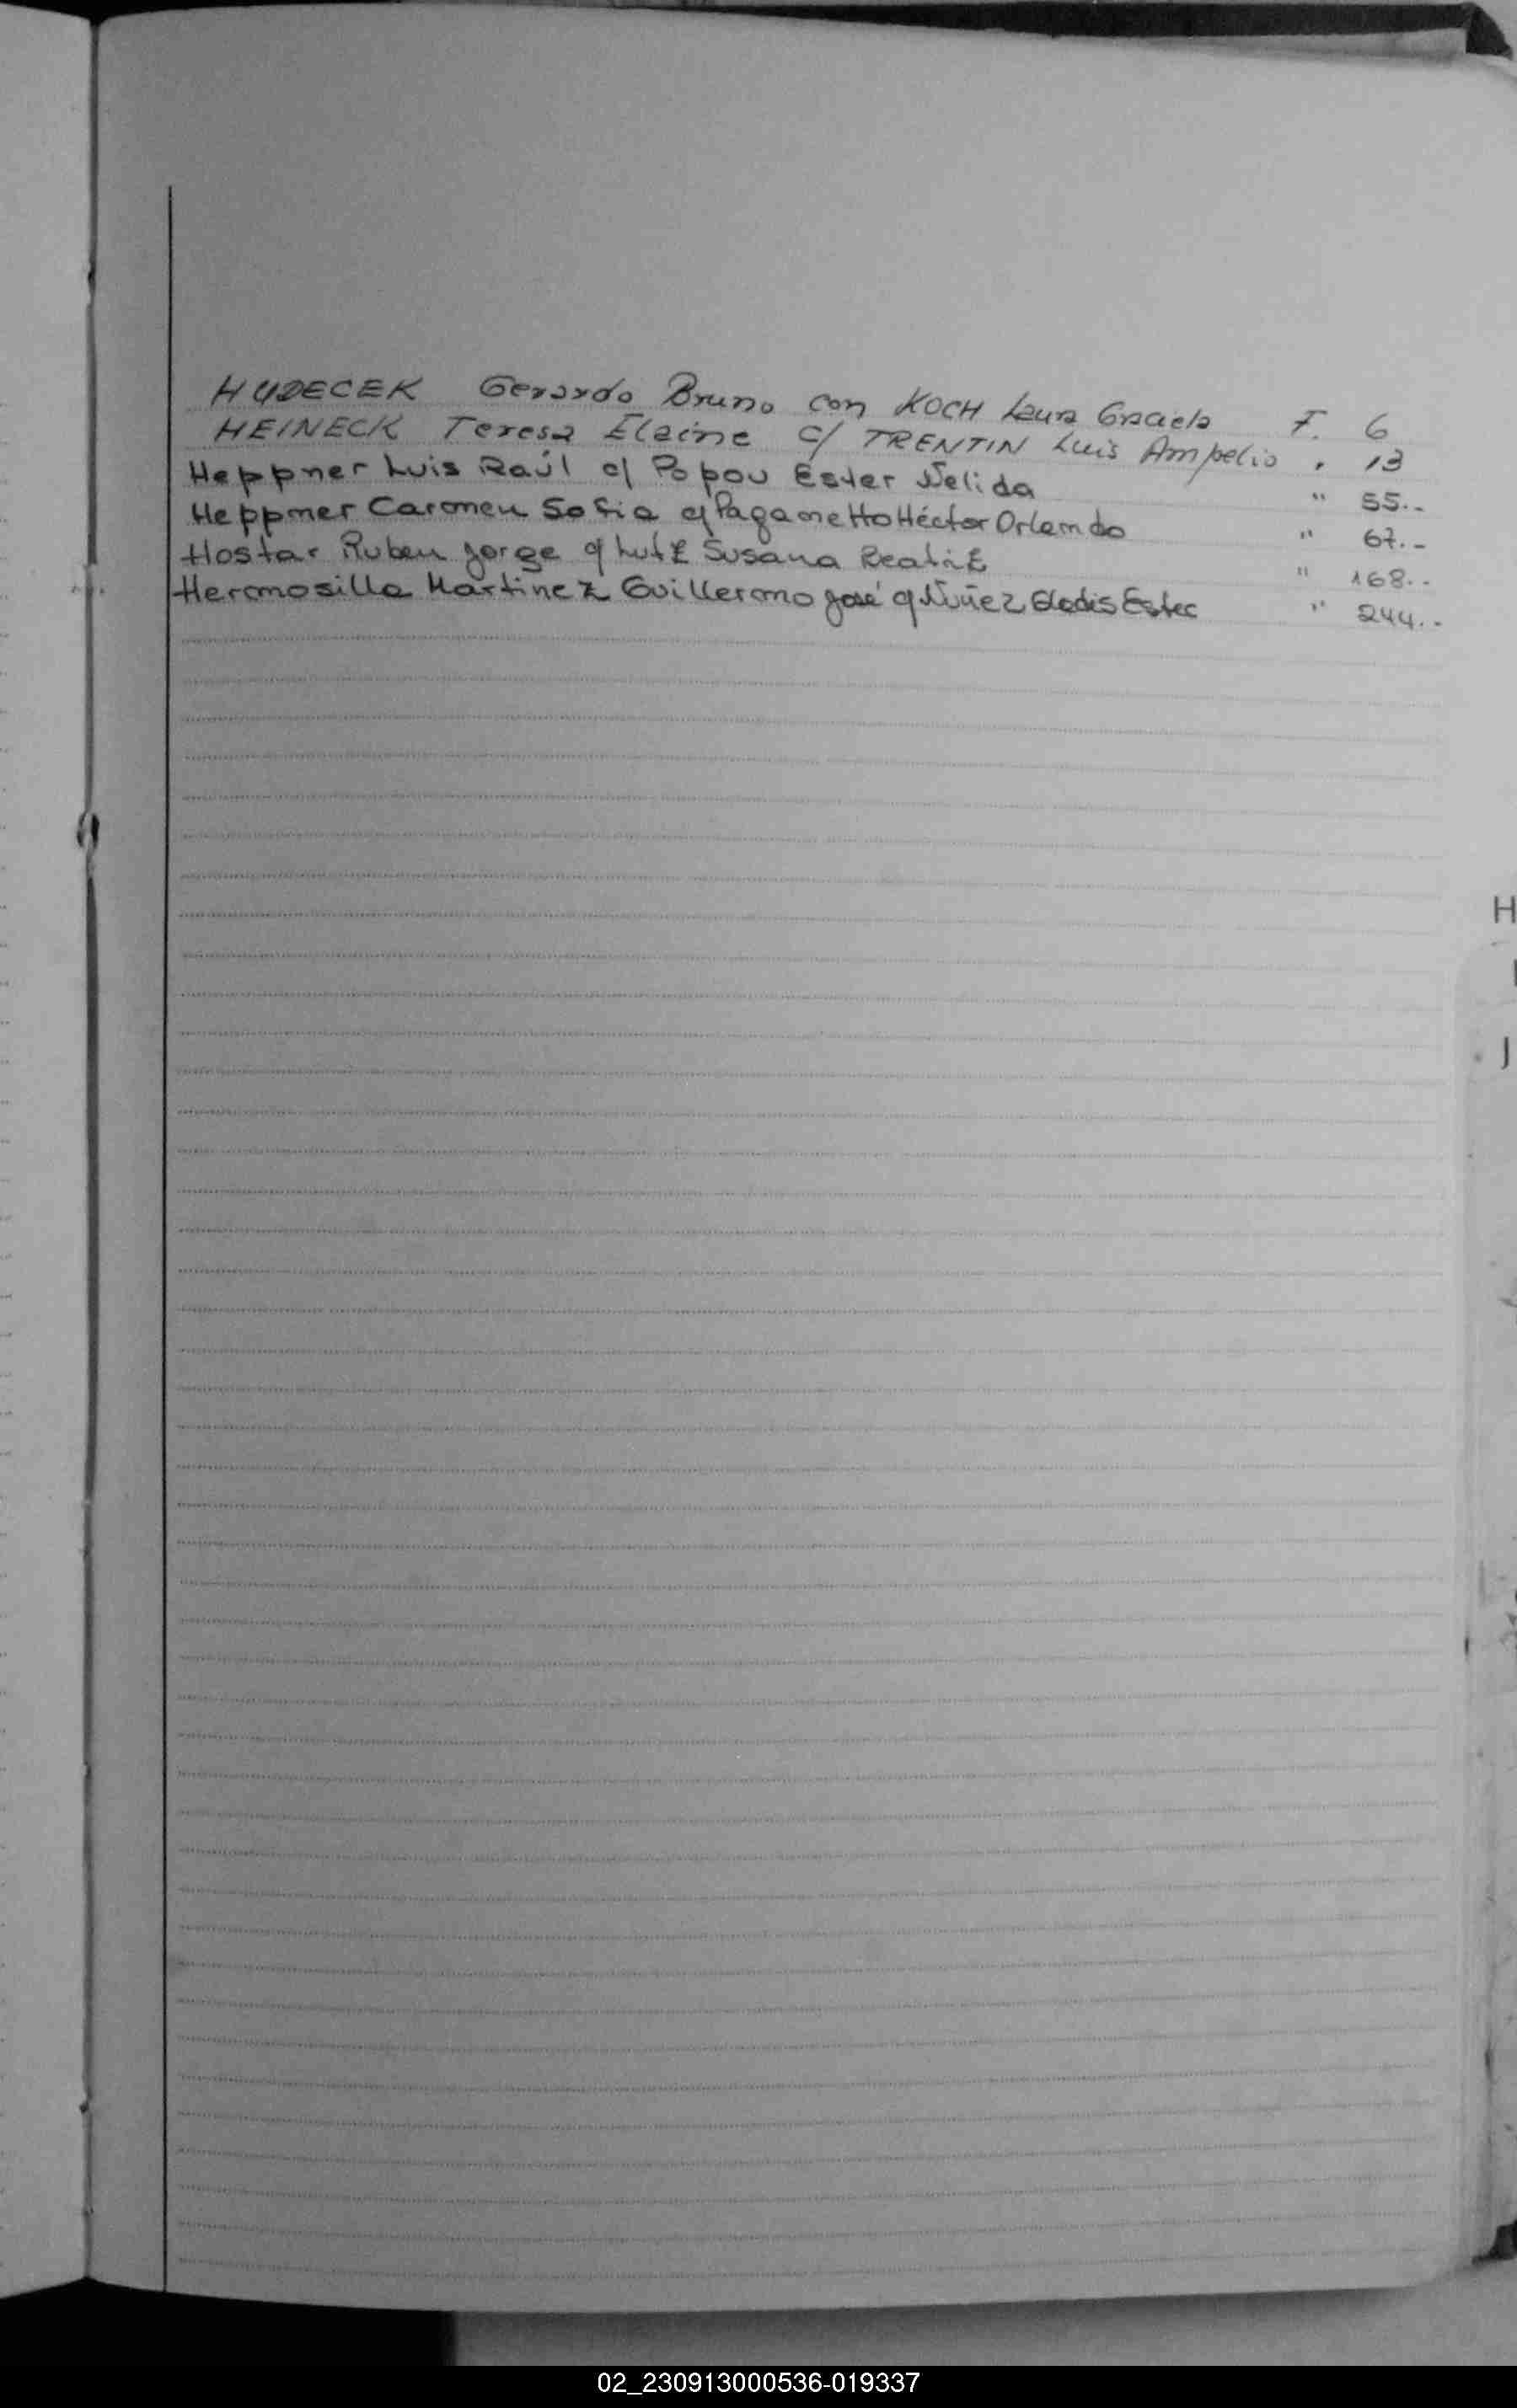 HUDECEK Gerardo Bruno con KOCH Laura Graciela F. 6
HEINECK Teresa Elaine c/ TRENTIN Luis Ampelio . 13
Heppner Luis Raúl c/ Popou Ester Nelida " 55.-
Heppner Carmen Sofia c/ Paganetto Héctor Orlando " 67.-
Hostar Ruben Jorge c/ Lutz Susana Beatriz " 168.-
Hermosilla Martinez Guillermo José c/ Nuñez Gladis Estec " 244.-
H
J
02_230913000536-019337